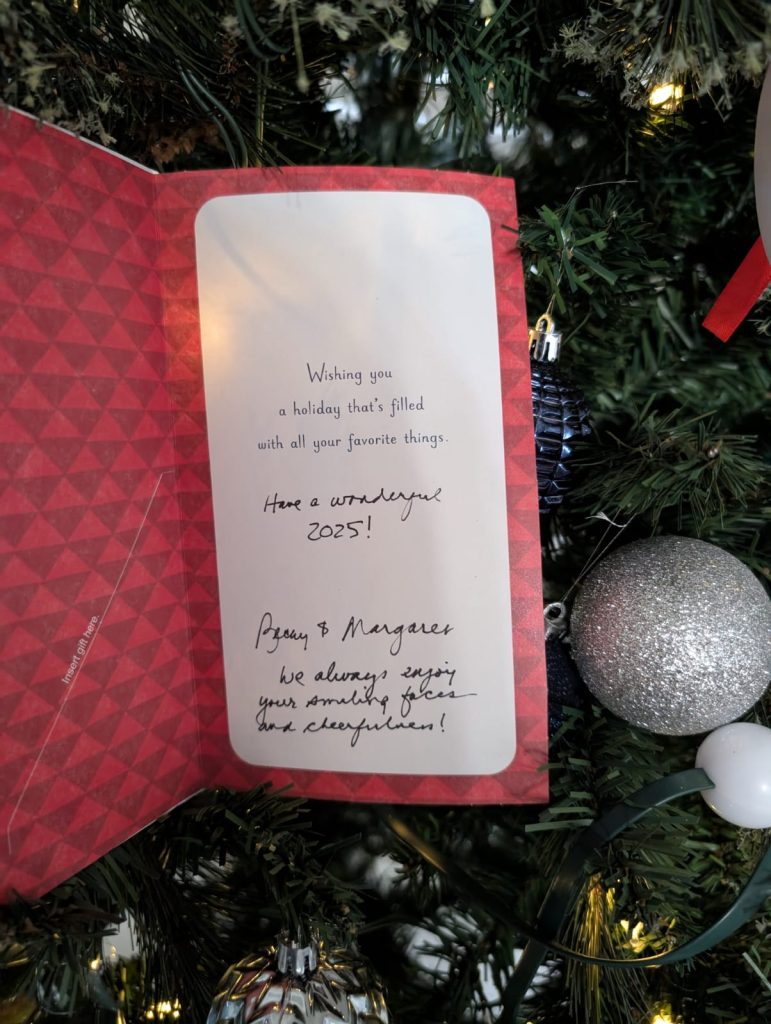 Insert gift here.
Wishing you
a holiday that's filled
with all your favorite things.
Have a wonderful
2025!
& Margaret
We always enjoy
your smiling faces
and cheerfulness!